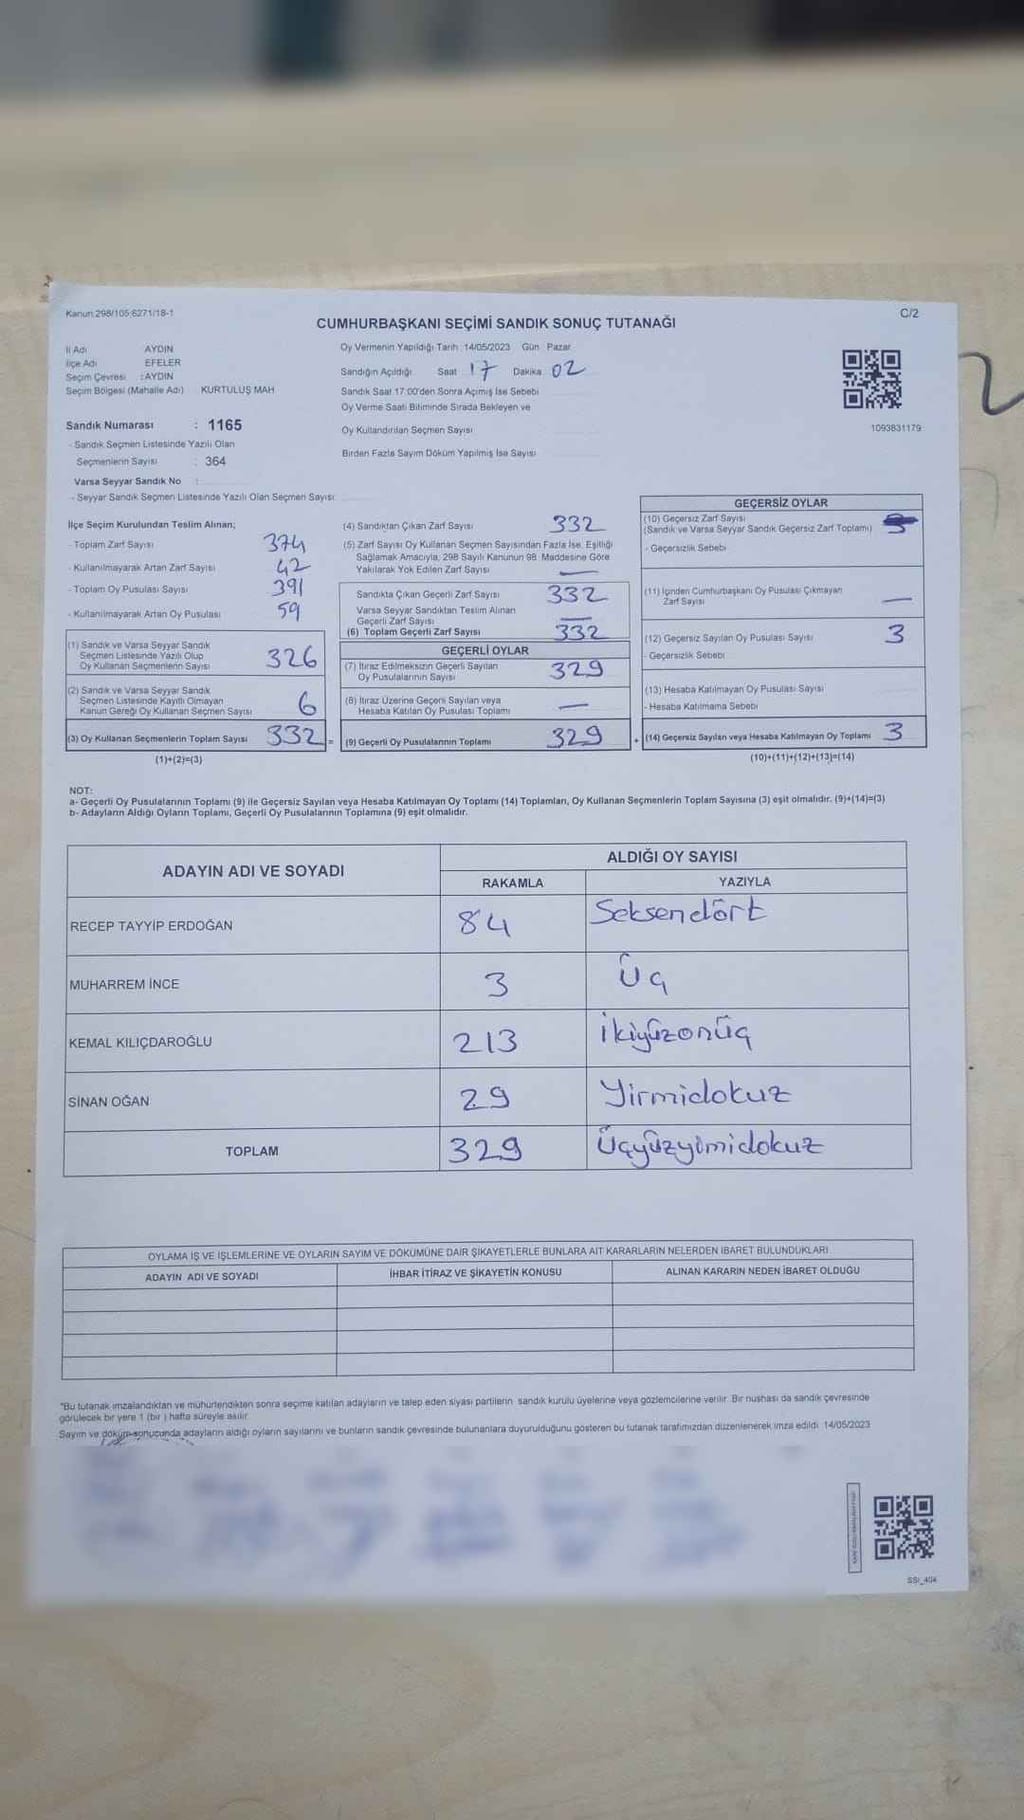 Kanun:298/105-6271/18-1
C/2
CUMHURBAŞKANI SEÇİMİ SANDIK SONUÇ TUTANAĞI
İl Adı AYDIN
İlçe Adı EFELER
Seçim Çevresi :AYDIN
Seçim Bölgesi (Mahalle Adı) KURTULUŞ MAH
Sandık Numarası : 1165
- Sandık Seçmen Listesinde Yazılı Olan
Seçmenlerin Sayısı : 364
Varsa Seyyar Sandık No :
- Seyyar Sandık Seçmen Listesinde Yazılı Olan Seçmen Sayısı:
Oy Vermenin Yapıldığı Tarih: 14/05/2023 Gün: Pazar
Sandığın Açıldığı Saat 17 Dakika 02
Sandık Saat 17:00'den Sonra Açılmış İse Sebebi
Oy Verme Saati Bitiminde Sırada Bekleyen ve
Oy Kullandırılan Seçmen Sayısı
Birden Fazla Sayım Döküm Yapılmış İse Sayısı
1093831179
2
İlçe Seçim Kurulundan Teslim Alınan;
- Toplam Zarf Sayısı 374
- Kullanılmayarak Artan Zarf Sayısı 42
- Toplam Oy Pusulası Sayısı 391
- Kullanılmayarak Artan Oy Pusulası 59
(1) Sandık ve Varsa Seyyar Sandık
Seçmen Listesinde Yazılı Olup
Oy Kullanan Seçmenlerin Sayısı 326
(2) Sandık ve Varsa Seyyar Sandık
Seçmen Listesinde Kayıtlı Olmayan
Kanun Gereği Oy Kullanan Seçmen Sayısı 6
(3) Oy Kullanan Seçmenlerin Toplam Sayısı 332 =
(1)+(2)=(3)
(4) Sandıktan Çıkan Zarf Sayısı 332
(5) Zarf Sayısı Oy Kullanan Seçmen Sayısından Fazla İse, Eşitliği
Sağlamak Amacıyla, 298 Sayılı Kanunun 98. Maddesine Göre
Yakılarak Yok Edilen Zarf Sayısı —
Sandıkta Çıkan Geçerli Zarf Sayısı 332
Varsa Seyyar Sandıktan Teslim Alınan
Geçerli Zarf Sayısı —
(6) Toplam Geçerli Zarf Sayısı 332
GEÇERLİ OYLAR
(7) İtiraz Edilmeksizin Geçerli Sayılan
Oy Pusulalarının Sayısı 329
(8) İtiraz Üzerine Geçerli Sayılan veya
Hesaba Katılan Oy Pusulası Toplamı —
(9) Geçerli Oy Pusulalarının Toplamı 329 +
GEÇERSİZ OYLAR
(10) Geçersiz Zarf Sayısı
(Sandık ve Varsa Seyyar Sandık Geçersiz Zarf Toplamı)
- Geçersizlik Sebebi
(11) İçinden Cumhurbaşkanı Oy Pusulası Çıkmayan
Zarf Sayısı —
(12) Geçersiz Sayılan Oy Pusulası Sayısı 3
- Geçersizlik Sebebi
(13) Hesaba Katılmayan Oy Pusulası Sayısı
- Hesaba Katılmama Sebebi
(14) Geçersiz Sayılan veya Hesaba Katılmayan Oy Toplamı 3
(10)+(11)+(12)+(13)=(14)
NOT:
a- Geçerli Oy Pusulalarının Toplamı (9) ile Geçersiz Sayılan veya Hesaba Katılmayan Oy Toplamı (14) Toplamları, Oy Kullanan Seçmenlerin Toplam Sayısına (3) eşit olmalıdır. (9)+(14)=(3)
b- Adayların Aldığı Oyların Toplamı, Geçerli Oy Pusulalarının Toplamına (9) eşit olmalıdır.
ADAYIN ADI VE SOYADI ALDIĞI OY SAYISI
RAKAMLA YAZIYLA
RECEP TAYYİP ERDOĞAN 84 Seksendört
MUHARREM İNCE 3 Üç
KEMAL KILIÇDAROĞLU 213 İkiyüzonüç
SİNAN OĞAN 29 Yirmidokuz
TOPLAM 329 Üçyüzyirmidokuz
OYLAMA İŞ VE İŞLEMLERİNE VE OYLARIN SAYIM VE DÖKÜMÜNE DAİR ŞİKAYETLERLE BUNLARA AİT KARARLARIN NELERDEN İBARET BULUNDUKLARI
ADAYIN ADI VE SOYADI İHBAR İTİRAZ VE ŞİKAYETİN KONUSU ALINAN KARARIN NEDEN İBARET OLDUĞU
*Bu tutanak imzalandıktan ve mühürlendikten sonra seçime katılan adayların ve talep eden siyasi partilerin sandık kurulu üyelerine veya gözlemcilerine verilir. Bir nushası da sandık çevresinde
görülecek bir yere 1 (bir) hafta süreyle asılır.
Sayım ve döküm sonucunda adayların aldığı oyların sayılarını ve bunların sandık çevresinde bulunanlara duyurulduğunu gösteren bu tutanak tarafımızdan düzenlenerek imza edildi. 14/05/2023
SSI_404